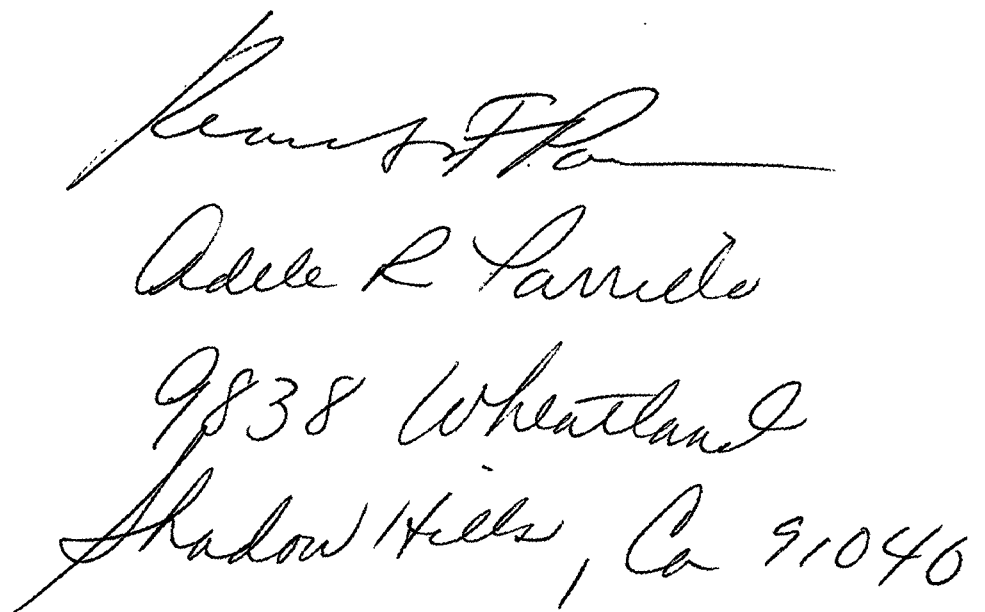 F
Adele R Parrillo
9838 Wheatland
Shadow Hills, Ca 91040